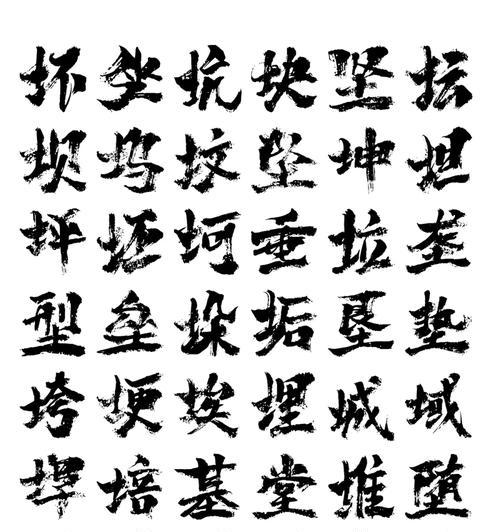 坏坐坑块坚坛
坝坞坟坠坤坦
坪坯坷垂垃垄
型垒垛垢垦垫
垮埂埃埋城域
埠培基堂堆堕